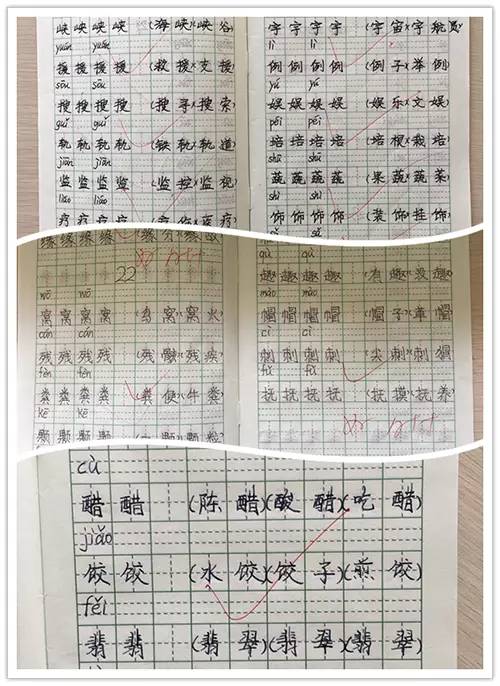 峡 峡 峡 峡 (海 峡)(峡 谷)
yuán yuán
援 援 援 援 (救 援)(支 援)
sōu sōu
搜 搜 搜 搜 (搜 寻)(搜 索)
guǐ guǐ
轨 轨 轨 轨 (铁 轨)(轨 道)
jiān jiān
监 监 监 监 (监 控)(监 视)
liáo liáo
疗 疗 疗 疗
宇 宇 宇 宇 (宇 宙)(宇 航 员)
lì lì
例 例 例 例 (例 子)(举 例)
yú yú
娱 娱 娱 娱 (娱 乐)(文 娱)
péi péi
培 培 培 培 (培 根)(栽 培)
shū shū
蔬 蔬 蔬 蔬 (果 蔬)(蔬 菜)
shì shì
饰 饰 饰 饰 (装 饰)(挂 饰)
缘 缘 缘 缘
22
wō wō
窝 窝 窝 窝
cán cán
残 残 残 残 (残 骸)(残 疾)
fèn fèn
粪 粪 粪 粪 (粪 便)(牛 粪)
kē kē
颗 颗 颗 颗
qù qù
趣 趣 趣 趣 (有 趣)(没 趣)
mào mào
帽 帽 帽 帽 (帽 子)(草 帽)
cì cì
刺 刺 刺 刺 (尖 刺)(刺 猬)
fǔ fǔ
抚 抚 抚 抚 (抚 摸)(抚 养)
cù
醋 醋 (陈 醋)(酸 醋)(吃 醋)
jiǎo
饺 饺 (水 饺)(饺 子)(煎 饺)
fěi
翡 翡 (翡 翠)(翡 翠)(翡 翠)